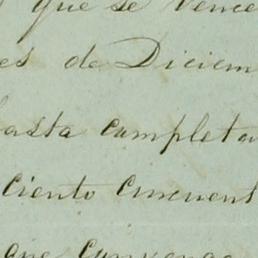 que se vence
es de Diciem
hasta completa
ciento cincuent
que convenga